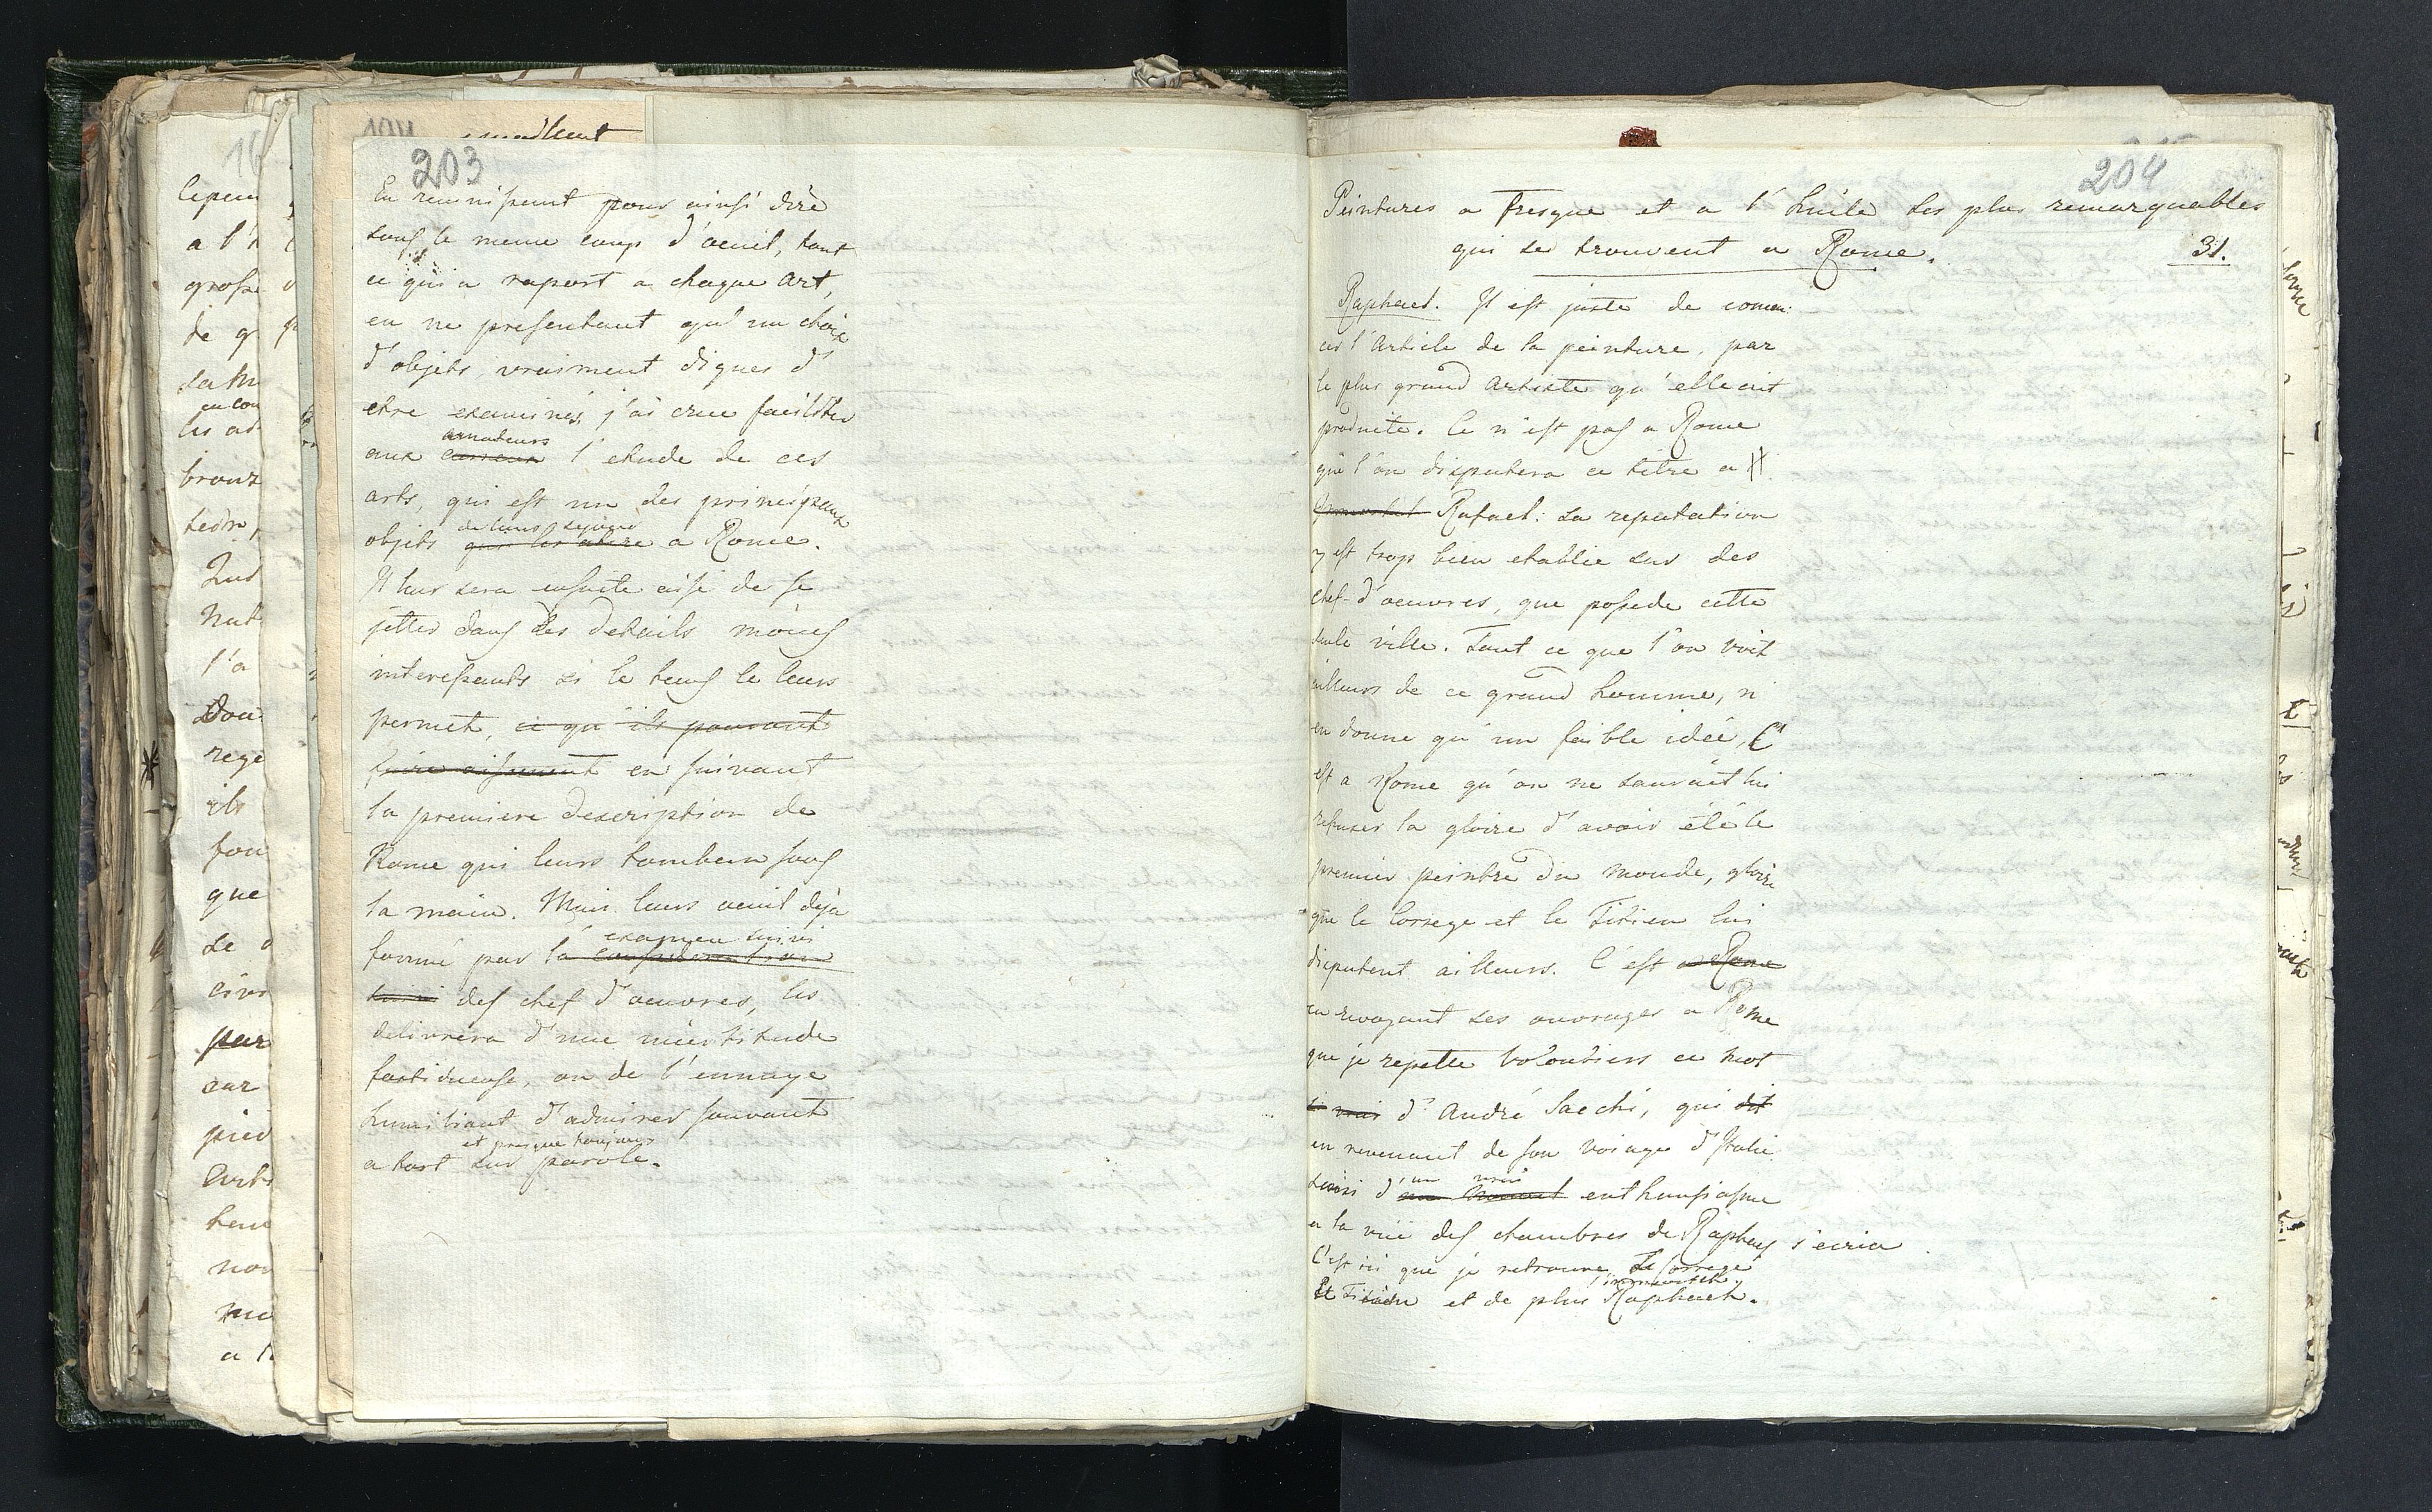 203
En reunissent pour ainsi dire
sous le meme coup d'oeuil, tout
ce qui a raport a chaque art,
en ne presentant qu'un choix
d'objets, vraiment dignes d'
etre examinés, j'ai crue faciliter
amateurs
aux curieux l'etude de ces
arts, qui est un des principaux
de leurs sejours
objets qui les attire a Rome.
Il leur sera ensuite aisé de se
jetter dans des details moins
interessants si le tems le leurs
permet, ce qu'ils pouront
faire aisement en suivant
la premiere description de
Rome qui leurs tombera sous
la main. Mais leurs oeuil déja
examen suivi
formé par la consideration
suivi des chef d'oeuvres, les
delivrera d'une incertitude
fastidieuse, ou de l'ennuye
humiliant d'admirer souvant
et presque toujours
a tort sur parole.
204
Peintures a fresque et a l'huile les plus remarquables
qui se trouvent a Rome.
31.
Raphael. Il est juste de comen:
cer l'Article de la peinture, par
le plus grand Artiste qu'elle ait
produite. Ce n'est pas a Rome
que l'on disputera ce titre a
Immortel Rafael: sa reputation
y est trop bien etablie sur des
chef-d'oeuvres, que possede cette
seule ville. Tout ce que l'on voit
ailleurs de ce grand homme, n'
en donne qu'un faible idée, C'
est a Rome qu'on ne sauroit lui
refuser la gloire d'avoir été le
premier peintre du monde, gloire
que le Correge et le Titien lui
disputent ailleurs. C'est a Rome
en revoyant ses ouvrages a Rome
que je repette volontiers ce mot
si vrai d'André Sacchi, qui dit
en revenant de son voiage d'Italie
un vrai
saisi d'un enthousiasme
a la vue des chambres de Raphael s'ecria
C'est ici que je retrouve Le Correge
l'immortel
Et Titien et de plus Raphael.